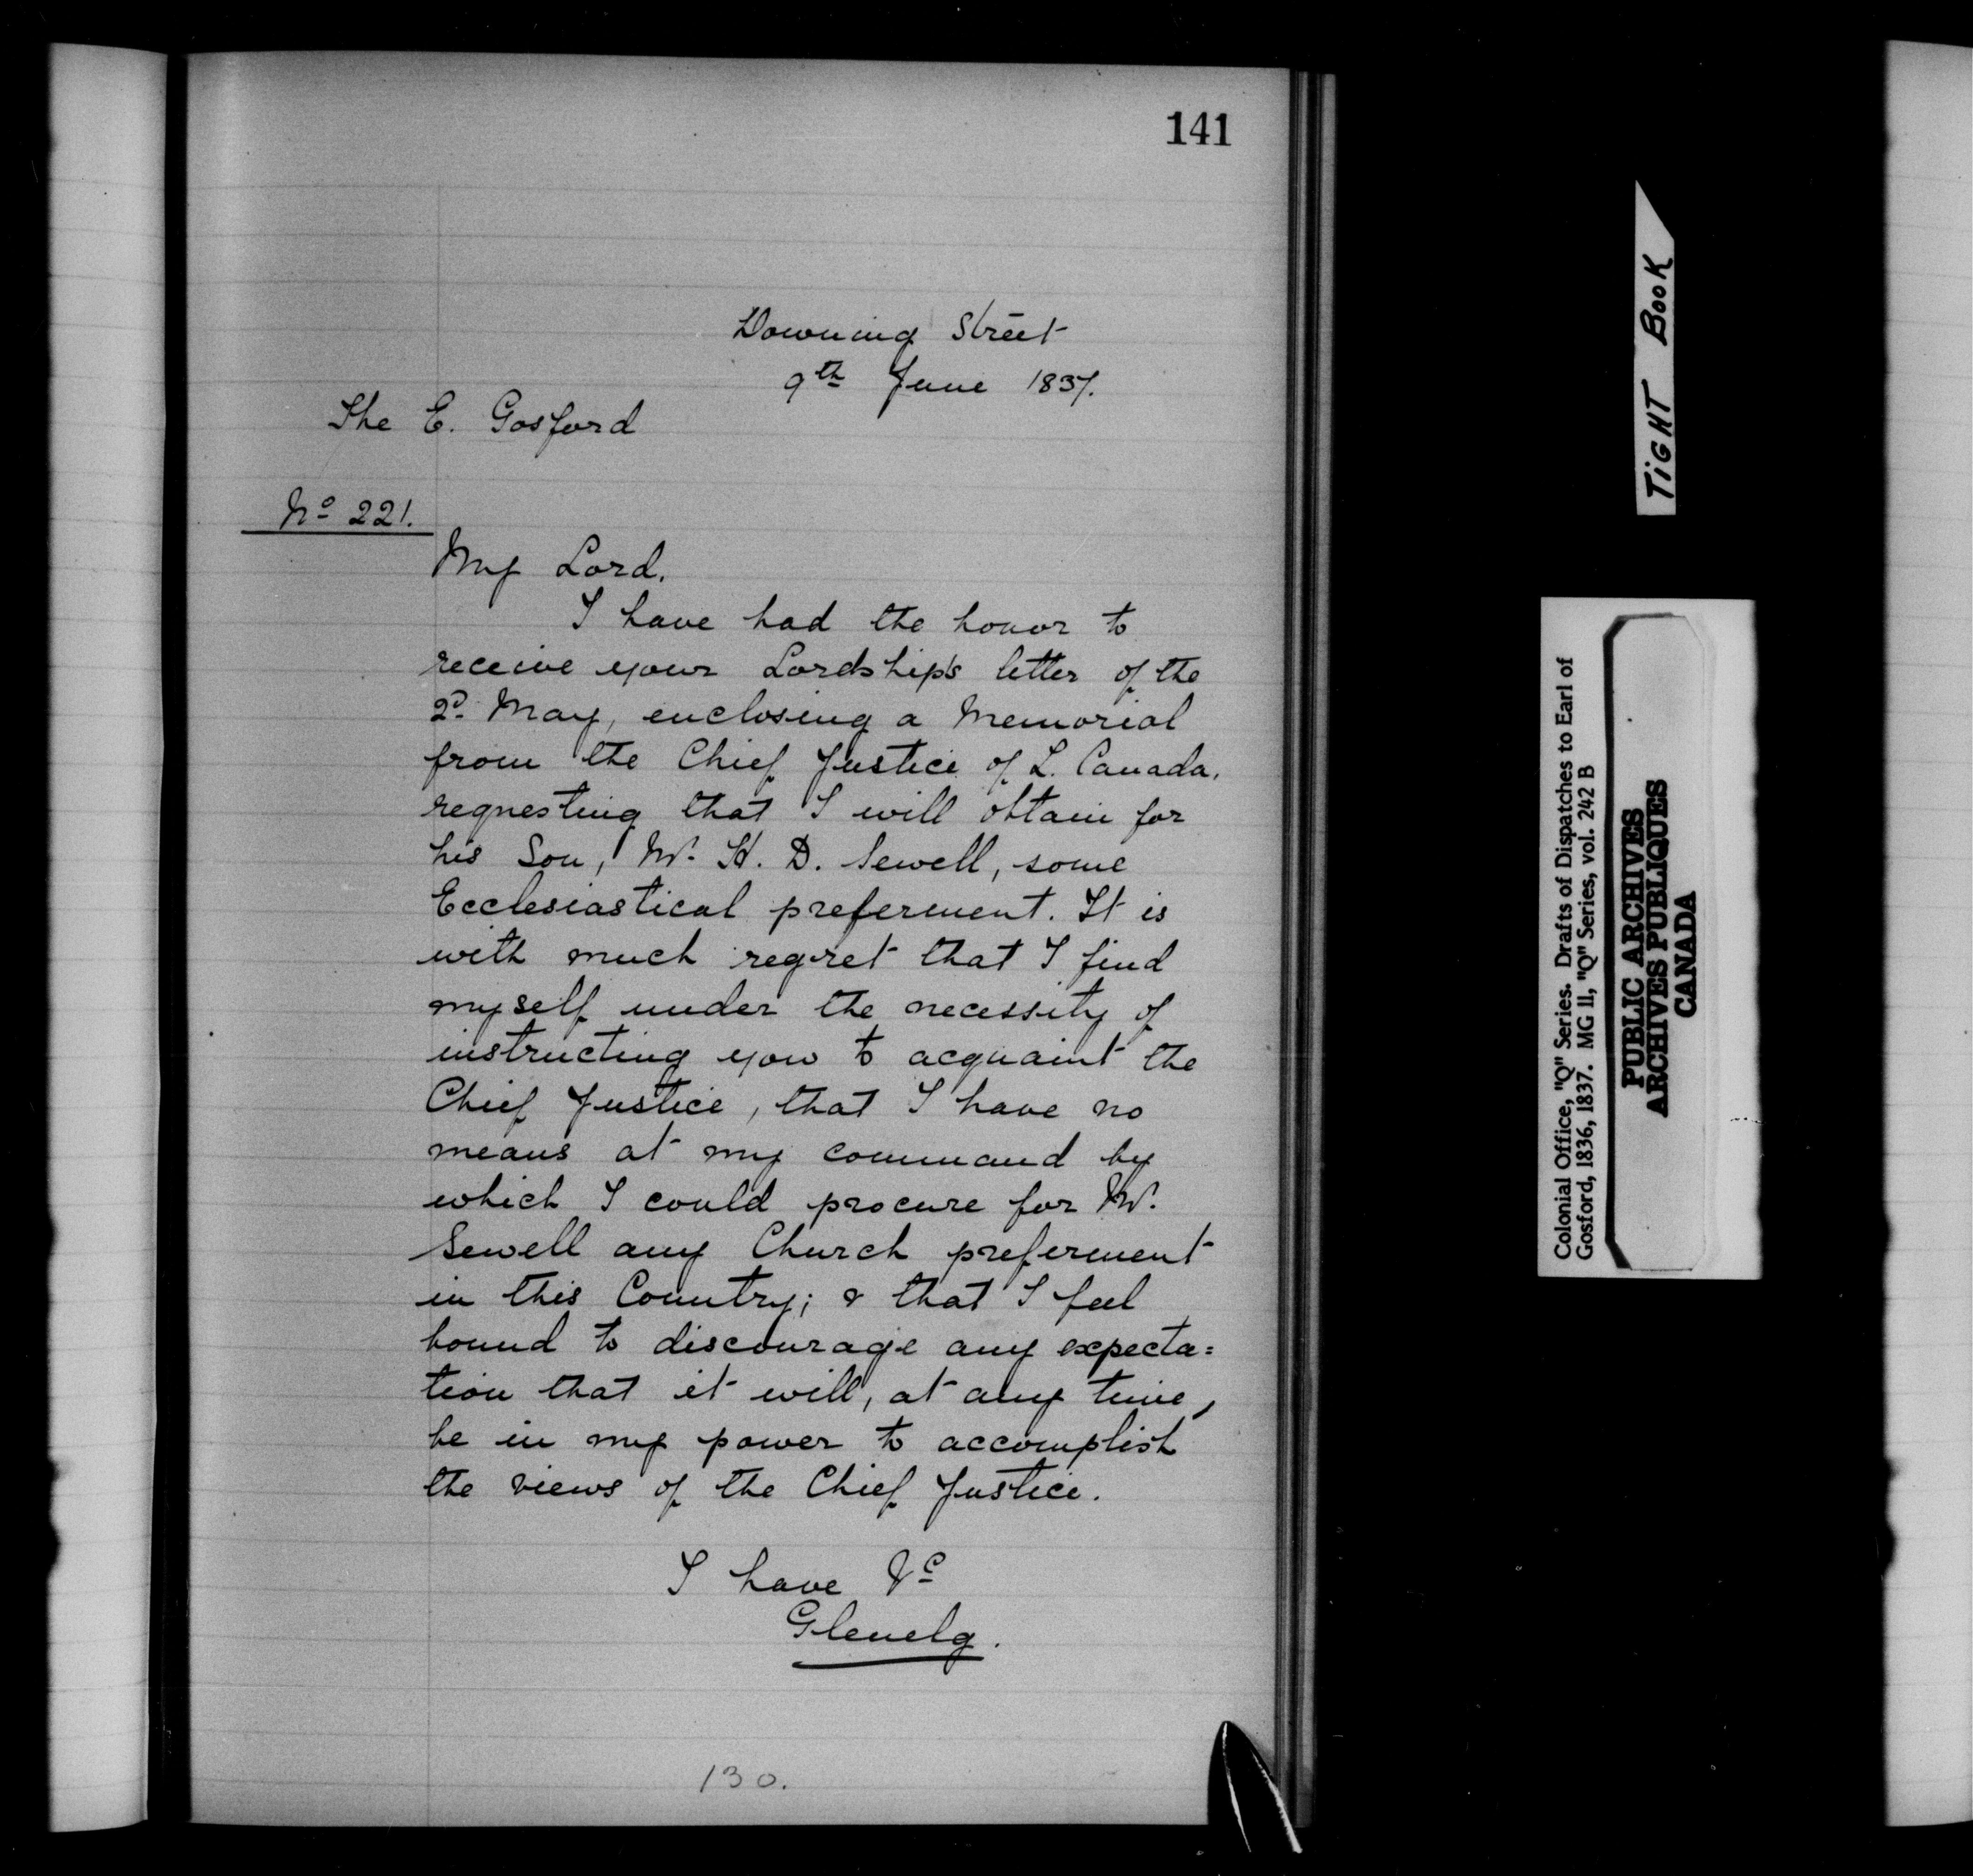 141
Downing Street
9th June 1837.
The E. Gosford
No 221.
My Lord.
I have had the honor to
receive your Lordship's letter of the
2d. May, enclosing a Memorial
from the Chief Justice of L. Canada,
requesting that I will obtain for
his Son, Mr. H. D. Sewell, some
Ecclesiastical preferment. It is
with much regret that I find
myself under the necessity of
instructing you to acquaint the
Chief Justice, that I have no
means at my command by
which I could procure for Mr.
Sewell any Church preferment
in this Country; & that I feel
bound to discourage any expecta=
tion that it will, at any time,
be in my power to accomplish
the views of the Chief Justice.
I have &c
Glenelg.
130.
TIGHT BOOK
Colonial Office, "Q" Series. Drafts of Dispatches to Earl of
Gosford, 1836, 1837. MG 11, "Q" Series, vol. 242 B
PUBLIC ARCHIVES
ARCHIVES PUBLIQUES
CANADA